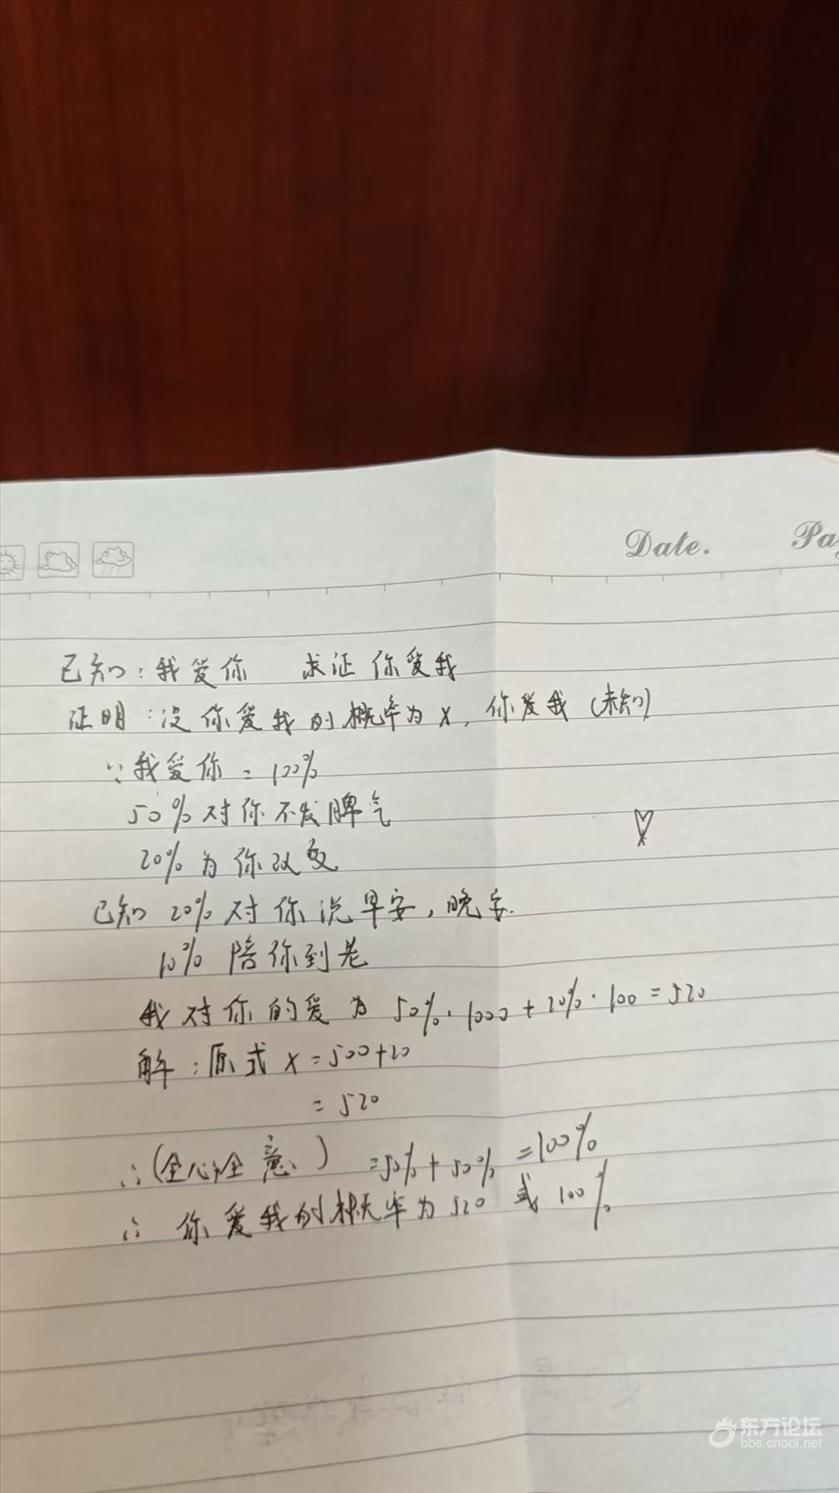 Date.
Pa
已知：我爱你 求证 你爱我
证明：设你爱我的概率为x，你爱我（未知）
∵我爱你=100%
50%对你不发脾气
20%为你改变
已知 20%对你说早安，晚安.
10% 陪你到老
我对你的爱为 50%·1000+20%·100=520
解：原式 x=500+20
=520
∴（全心全意）=50%+50%=100%
∴ 你爱我的概率为520 或100%
东方论坛
bbs.cnool.net